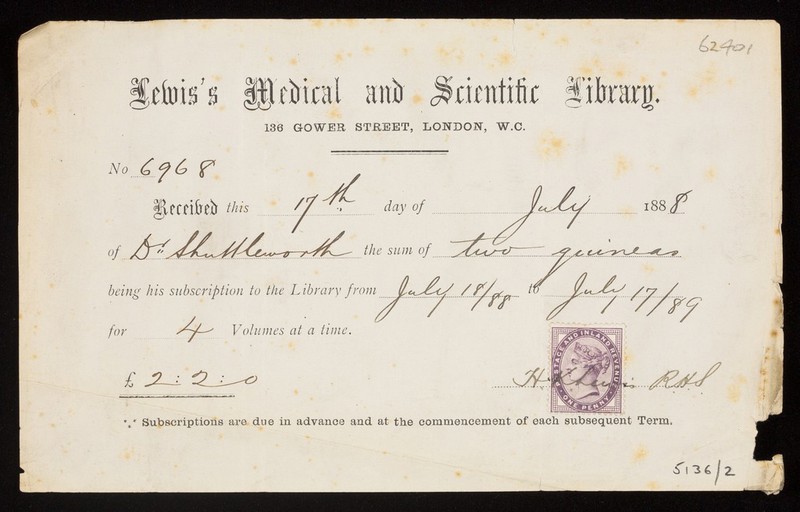 62401
Lewis's Medical and Scientific Library.
136 GOWER STREET, LONDON, W.C.
No 6968
Received this 17th day of July 1888
of Dr Shuttleworth the sum of two guineas
being his subscription to the Library from July 18/88 to July 17/89
for 4 Volumes at a time.
POSTAGE AND INLAND REVENUE
ONE PENNY
£ 2:2:0 H. K. Lewis RHS
Subscriptions are due in advance and at the commencement of each subsequent Term.
5136/2